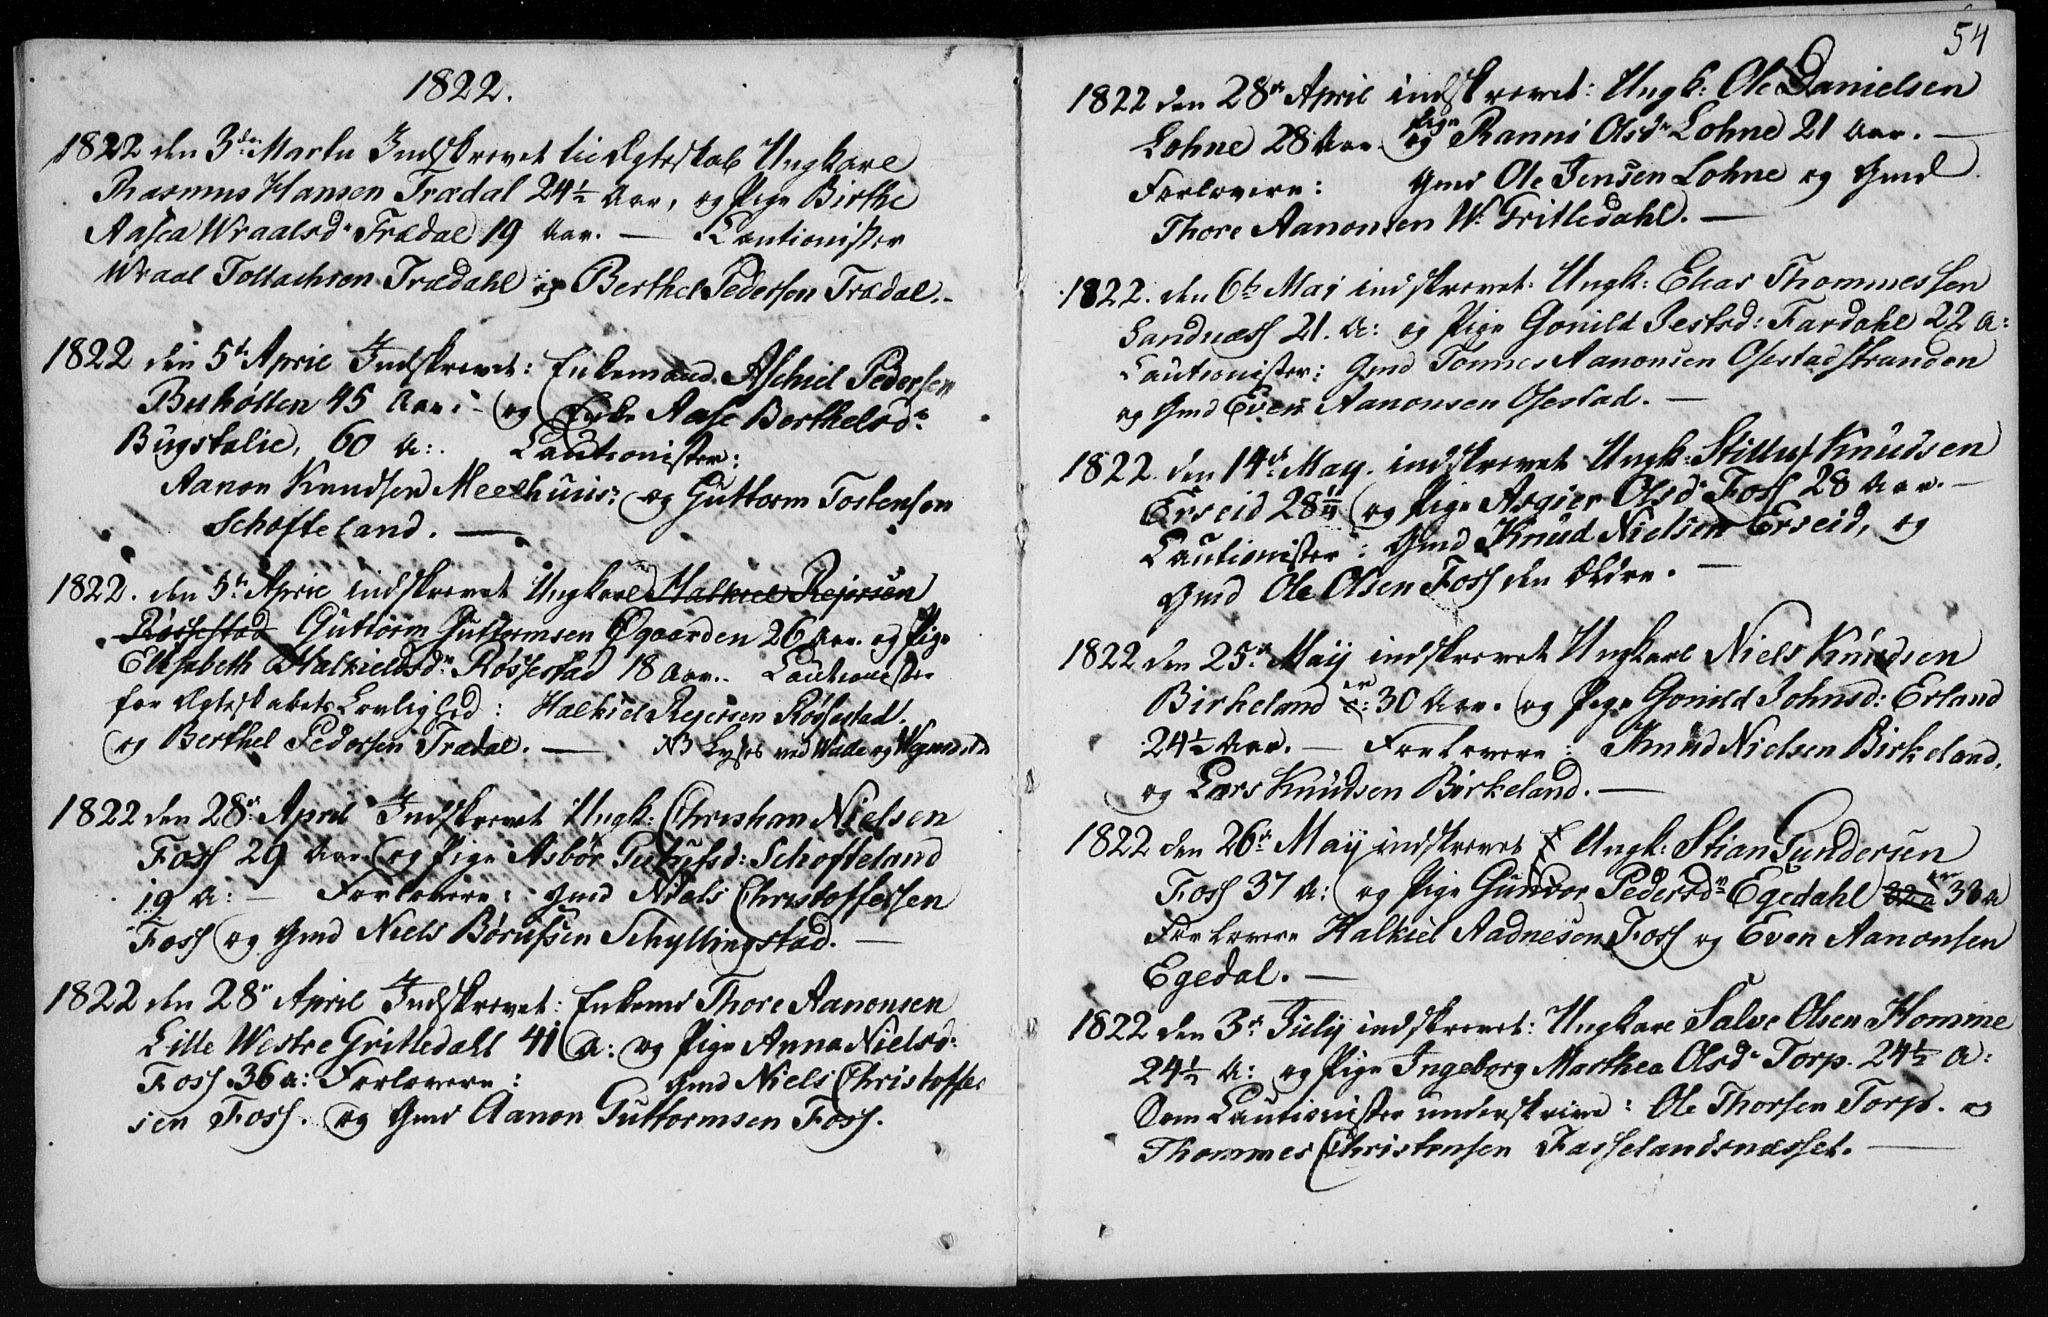 1822.
1822 den 3de Martii Indskrevet til Ægteskab Ungkarl
Rasmus Hansen Trædal 24½ Aar, og Pige Birthe
Aasea Wraalsdr Trædal 19 Aar. — Cautionister
Wraal Tollachsen Trædahl og Berthel Pedersen Trædal. -
1822 den 5te April Indskrevet: Enkemand Aschiel Pedersen
45 Aar: - og Enke Aase Berthelsdr
Bugstølie, 60 A: Cautionister:
Aanon Knudsen Meelhuus: og Guttorm Tostensen
Schofteland. —
1822. den 5te April indskrevet Ungkarl Halkiel Rejersen
Røssestad Guttorm Guttormsen Øgaarden 26 Aar. og Pige
Elisabeth Halkieldsdr Røssestad 18 Aar. - Cautionister
for Ægteskabets Lovlighed: Halkiel Rejersen Røssestad.
og Berthel Pedersen Trædal. — NB Lyses ved
1822 den 28de April Indskrevet Ungk: Christian Nielsen
Foss 29 Aar og Pige Asbør Schofteland
19 A: — Forlovere: Gmd Niels Christoffersen
Foss og Gmd Niels Børufsen Schyllingstad. —
1822 den 28de April Indskrevet: Enkemd Thore Aanonsen
Lille Westre Gritledahl 41 a: og Pige Anna Nielsd:
Foss 36 a: Forlovere: Gmd Niels Christoffer
sen Foss. og Gmd Aanon Guttormsen Foss.
54
1822 den 28de April indskrevet: Ungk: Ole Danielsen
Pige
Lohne 28 Aar og Ranni Olsdr Lohne 21 Aar. —
Forlovere: Gmd Ole Jensen Lohne og Gmd
Thore Aanonsen W. Gritledahl. —
1822. den 6te Maj indskrevet. Ungk: Elias Thommessen
Sandnæss 21. A: og Pige Gonild Jestsd: Fardahl 22 A:
Cautionister: Gmd Tønnes Aanonsen Osestadstranden
og Gmd Even Aanonsen Osestad. —
1822 den 14de May. indskrevet Ungk: Knudsen
Erseid 28 og Pige Asgier Olsdr Foss 28 Aar. —
Cautionister: Gmd Knud Nielsen Erseid, og
Gmd Ole Olsen Foss den Ældre. —
1822 den 25de Maij indskrevet Ungkarl Niels Knudsen
Birkeland 30 Aar. og Pige Gonild Johnsd: Erland
24½ Aar. — Forlovere: Knud Nielsen Birkeland,
og Lars Knudsen Birkeland. —
1822 den 26de Maij indskrevet Ungk: Stian Gundersen
Foss 37 A: og Pige Gunvor Pedersdr Egedahl
Forlovere Halkiel Aadnesen Foss og Even Aanonsen
Egedal. —
1822 den 3de Julij indskrevet: Ungkarl Salve Olsen Homme
24½ A: og Pige Ingeborg Marthea Olsdr Torp. 24½ A:
Som Cautionister underskrive: Ole Thorsen Torp. og
Thommes Christensen Fasselandsnæsset. —